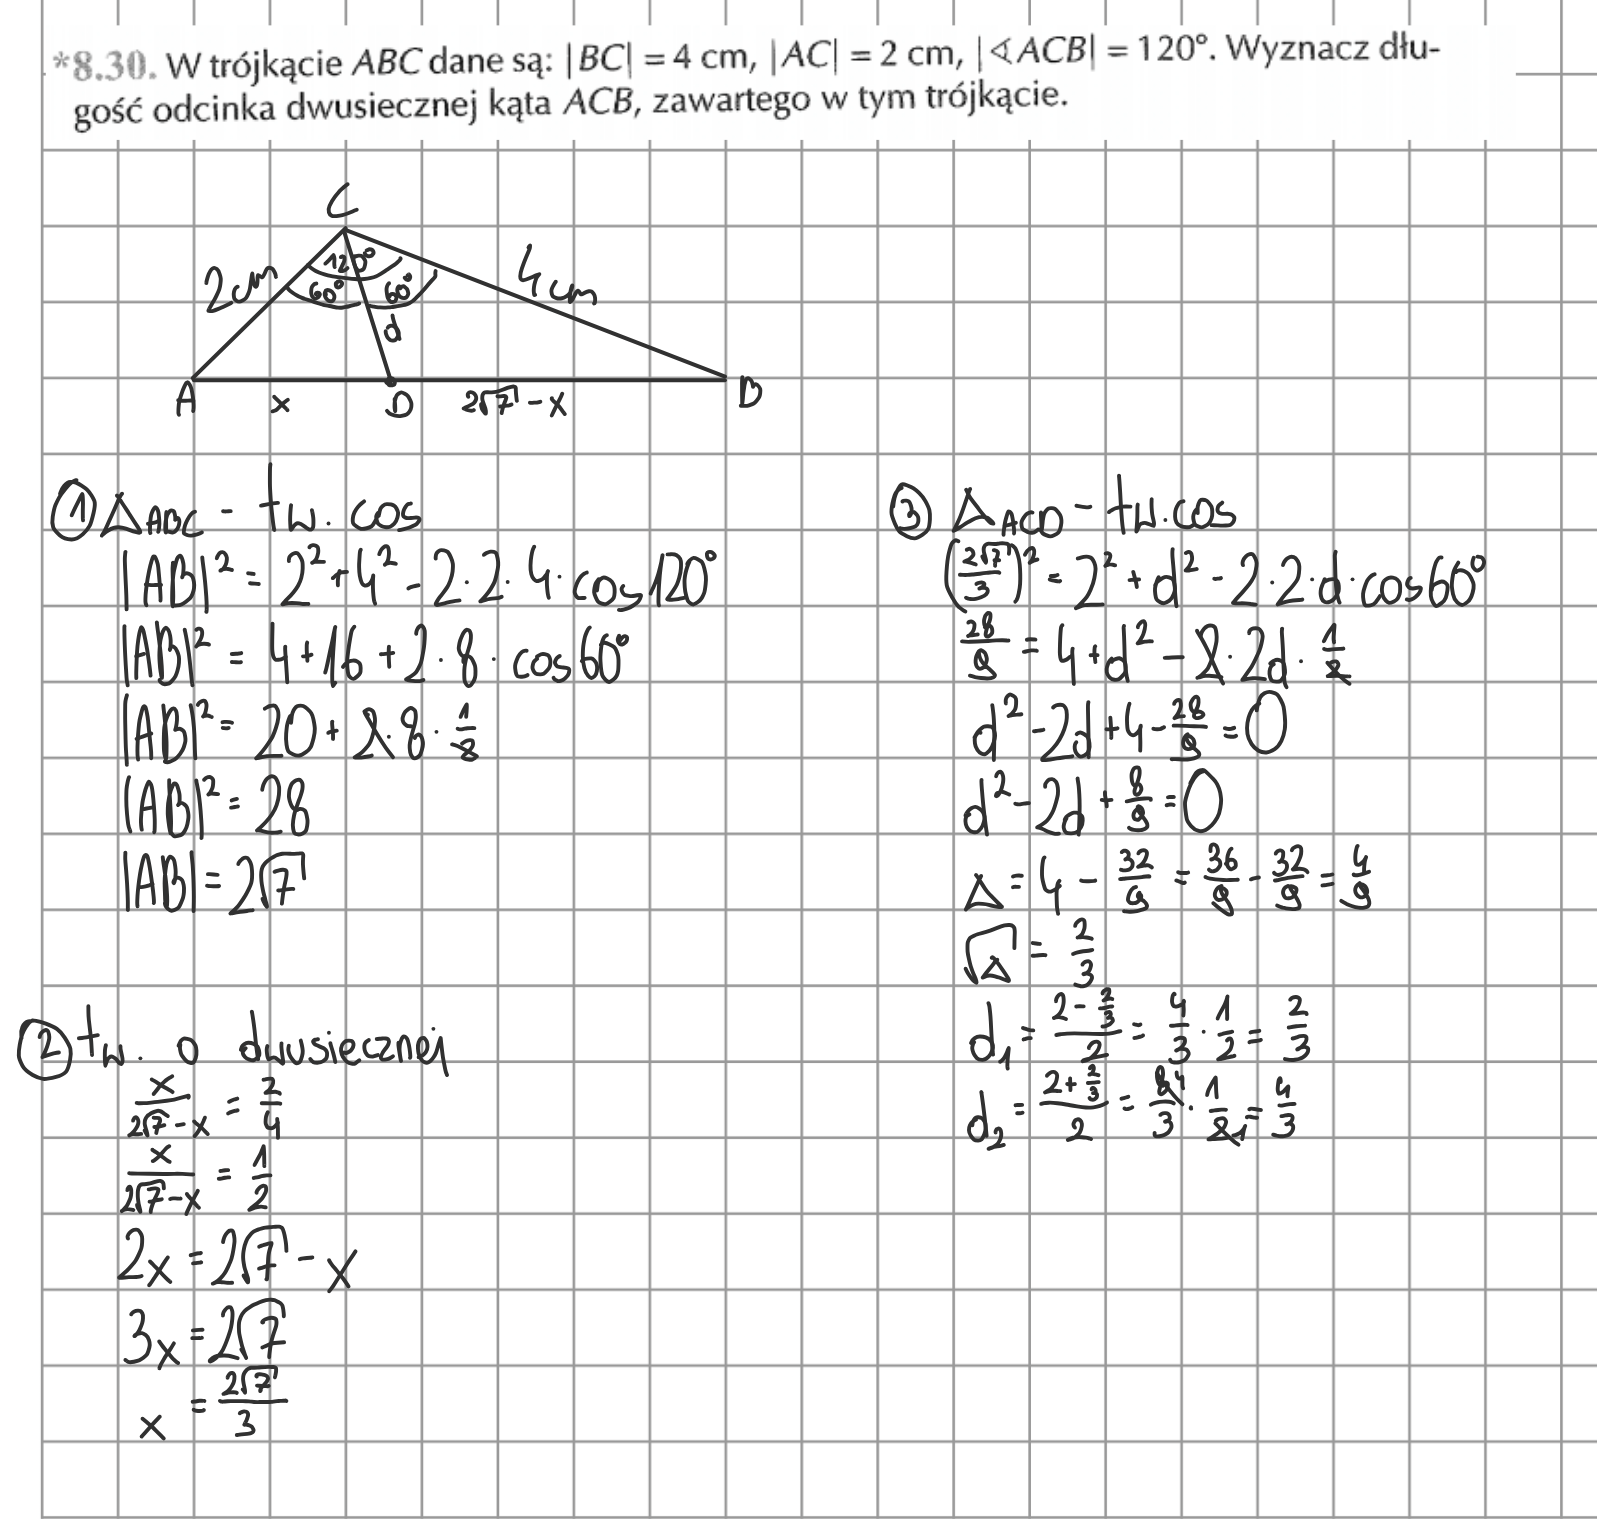 *8.30. W trójkącie ABC dane są: |BC| = 4 cm, |AC| = 2 cm, |∢ACB| = 120°. Wyznacz dłu-
gość odcinka dwusiecznej kąta ACB, zawartego w tym trójkącie.
C
120°
2cm
60° 60°
4cm
d
A x D 2√7-x B
① △ABC - tw. cos
|AB|² = 2²+4²-2·2·4·cos120°
|AB|² = 4+16+2·8·cos60°
|AB|² = 20+2·8·1/2
|AB|² = 28
|AB| = 2√7
② tw. o dwusiecznej
x/(2√7-x) = 2/4
x/(2√7-x) = 1/2
2x = 2√7-x
3x = 2√7
x = 2√7/3
③ △ACD - tw.cos
(2√7/3)² = 2²+d²-2·2·d·cos60°
28/9 = 4+d²-2·2d·1/2
d²-2d+4-28/9=0
d²-2d+8/9=0
△ = 4 - 32/9 = 36/9 - 32/9 = 4/9
√△ = 2/3
d₁ = (2-2/3)/2 = 4/3·1/2 = 2/3
d₂ = (2+2/3)/2 = 8 4/3·1/2 1 = 4/3